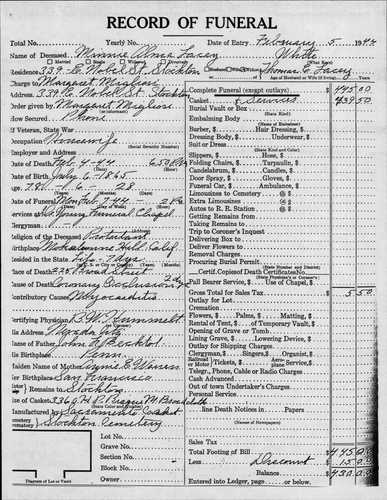 RECORD OF FUNERAL
Total No. Yearly No. Date of Entry February 5 1944
Name of Deceased Minnie Alma Lacey White
Married Single Widowed Divorced (What Race)
Residence 339 E. Nobel St. Stockton Husband Widow Thomas E. Lacey
Age of Husband or Wife (if living)
Charge to Margaret
Address 339 E. Nobel St. Stockton
Order given by Margaret
How Secured Phone
If Veteran, State War
Occupation Housewife
(Social Security Number)
Employer and Address
Date of Death Feb-4-44 6:50 PM
Date of Birth July 6-1865
Age 78 6 28
Date of Funeral Mon Feb-7-44 2 PM
Services at Funeral Chapel
Clergyman
Religion of the Deceased Protestant
Birthplace Mokelumne Hill Calif.
Resided in the State Life Yrs.
Place of Death 225 Broad Street
Cause of Death Coronary Occlusion 2 da
Contributory Causes Myocarditis
Certifying Physician B. W. Hummelt
His Address Nevada City
Name of Father John H. Bechtol
His Birthplace Penn.
Maiden Name of Mother Warren
Her Birthplace San Francisco
Remains to Stockton
Size of Casket 3366
Manufactured by Sacramento Casket
Stockton Cemetery
Lot No.
Grave No.
Section No.
Block No.
Owner
Diagram of Lot or Vault
Complete Funeral (except outlays) $ 445.00
Casket & Services 439.50
Burial Vault or Box
(State Kind)
Embalming Body
(Name of Embalmer)
Barber, $ Hair Dressing, $
Dressing Body, $ Underwear, $
Suit or Dress
(State Kind and Color)
Slippers, $ Hose, $
Folding Chairs, $ Tarpaulin, $
Candelabrum, $ Candles, $
Door Spray, $ Gloves, $
Funeral Car, $ Ambulance, $
Limousines to Cemetery @ $
Extra Limousines @ $
Autos to R. R. Station @ $
Getting Remains from
Taking Remains to
Trip to Coroner's Inquest
Delivering Box to
Deliver Flowers to
Removal Charges
Procuring Burial Permit
(State Number and District)
Certif. Copies of Death Certificates No.
(State Physician's or Coroner's)
Pall Bearer Service, $ Use of Chapel, $
Gross Total for Sales Tax $ 5.50
Outlay for Lot
Cremation
Flowers, $ Palms, $ Matting, $
Rental of Tent, $ of Temporary Vault, $
Opening of Grave or Tomb
Lining Grave, $ Lowering Device, $
Outlay for Shipping Charges
Clergyman, $ Singers, $ Organist, $
Railroad or Motor Tickets, $ Aeroplane Service, $
Telegr., Phone, Cable or Radio Charges
Cash Advanced
Out of town Undertaker's Charges
Personal Service
line Death Notices in Papers
(Names of Newspapers)
Sales Tax
Total Footing of Bill $ 445.00
Less Discount $ 15.00
Balance $ 430.00
Entered into Ledger, page or below.